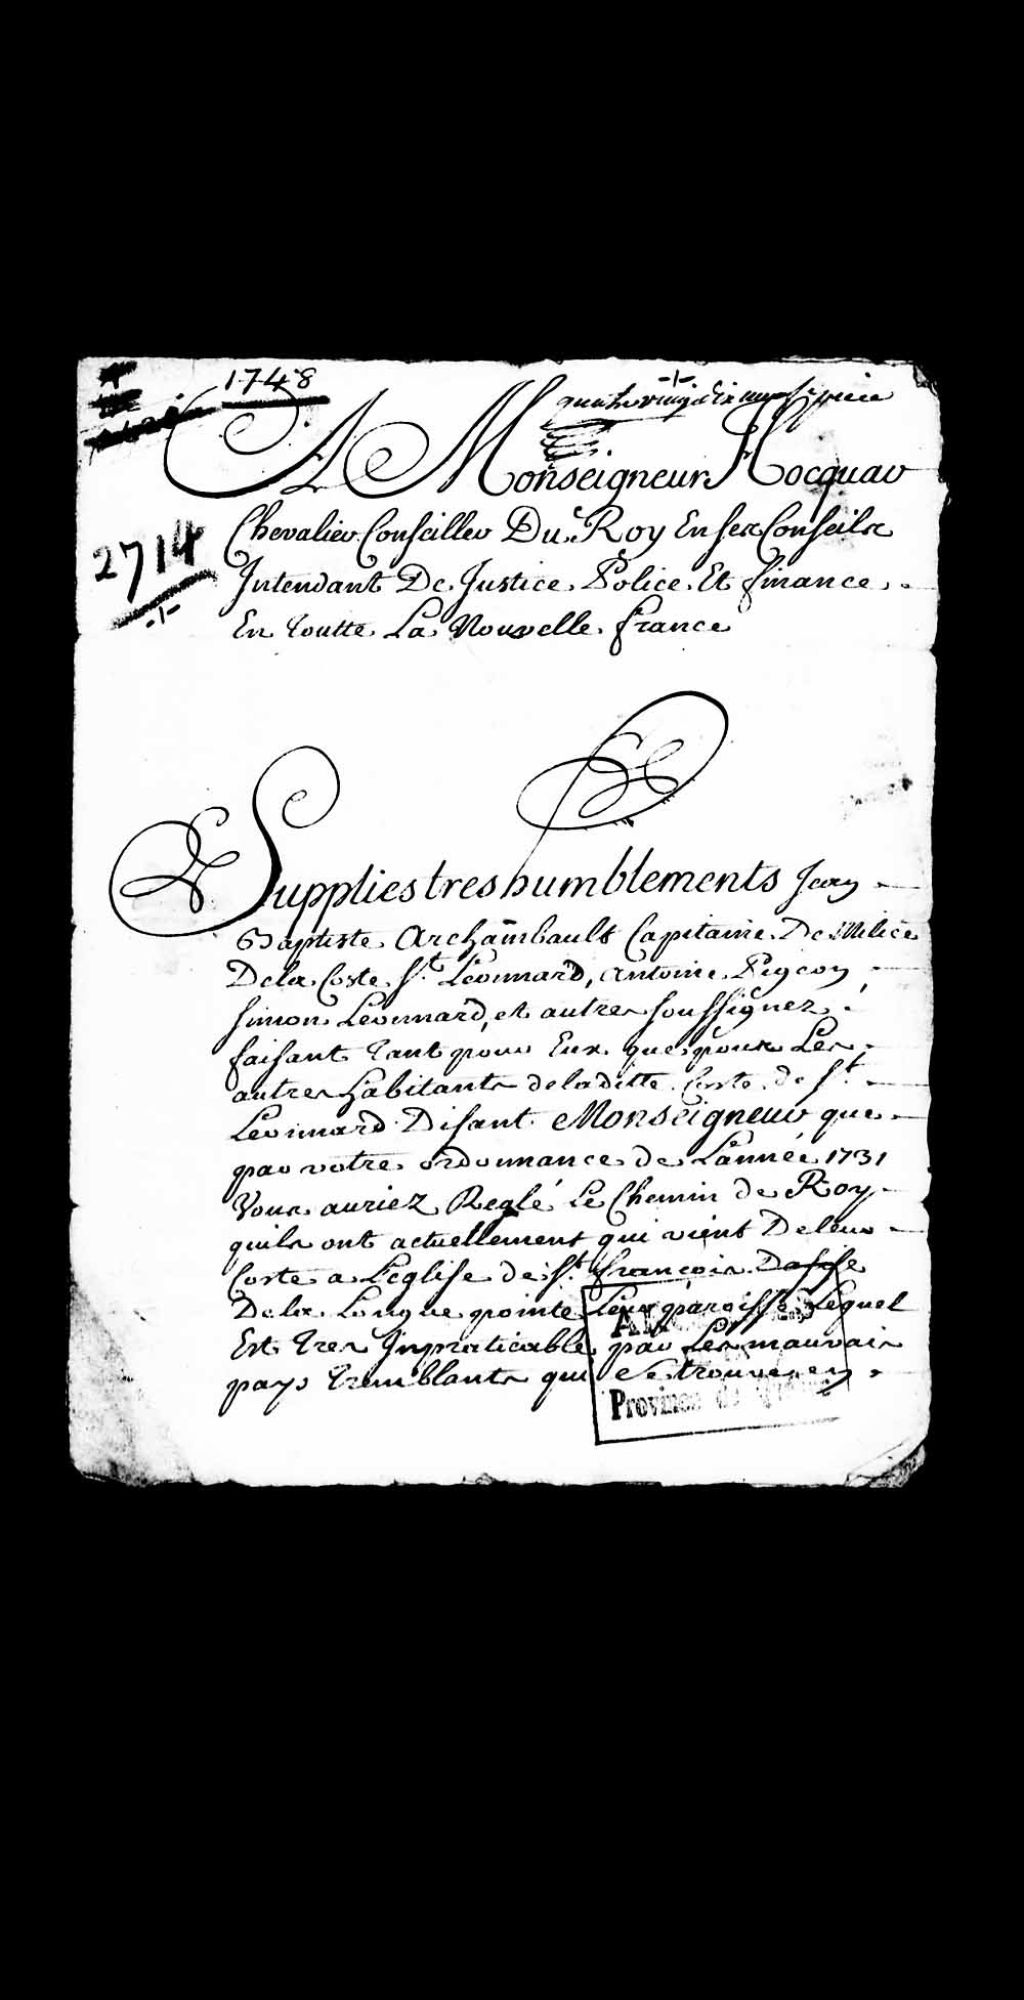 1748
quatrevingt dix neuf.e piece
A Monseigneur Hocquar
2714
Chevalier Conseiller Du Roy En ses Conseils
Intendant De Justice Police Et finance
En toutte La Nouvelle france
Supplies tres humblements Jean
Baptiste Archambault Capitaine De Milice
Dela Coste St Leonnard, Antoine Pigeon
Simon Leonnard, et autres soussignez
faisant tant pour Eux que pour Les
autres habitants deladitte Coste de St
Leonnard Disant Monseigneur que
par votre ordonnance de Lannée 1731
Vous auriez Reglé Le Chemin de Roy
quils ont actuellement qui vient De leur
Coste a Leglise de St françois Dassise
De la Longue pointe Leur paroisse Lequel
Est tres Inpraticable par Les mauvais
pays tremblants qui se trouve en
Province de